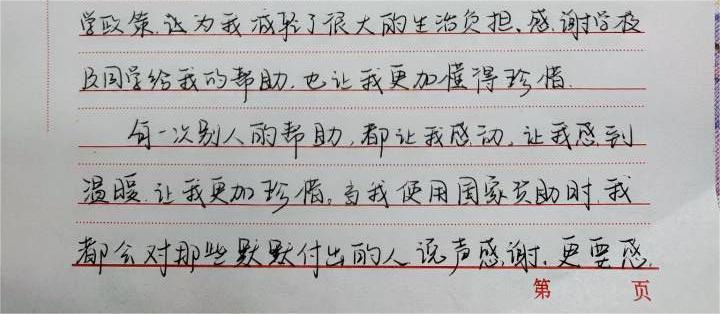 学政策,这为我减轻了很大的生活负担、感谢学校
及同学给我的帮助,也让我更加懂得珍惜.
每一次别人的帮助,都让我感动,让我感到
温暖,让我更加珍惜。当我使用国家资助时,我
都会对那些默默付出的人说声感谢,更要感
第 页